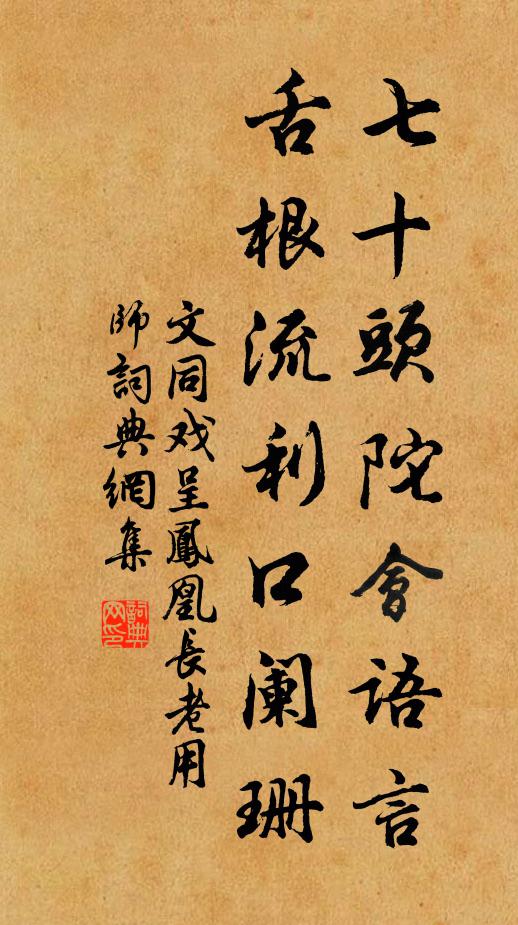 七十頭陀會語言
舌根流利口阑珊
文同戏呈鳳凰長老用
師詞典網集
詞典網印